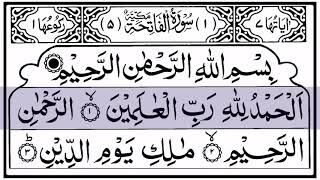 اٰيَاتُهَا ٧ (١) سُوْرَةُ الْفَاتِحَةِ مَكِّيَّةٌ (٥) رُكُوْعُهَا ١
بِسْمِ اللهِ الرَّحْمٰنِ الرَّحِيْمِ
اَلْحَمْدُ لِلّٰهِ رَبِّ الْعٰلَمِيْنَ ۙ ١ الرَّحْمٰنِ
الرَّحِيْمِ ۙ ٢ مٰلِكِ يَوْمِ الدِّيْنِ ؕ ٣